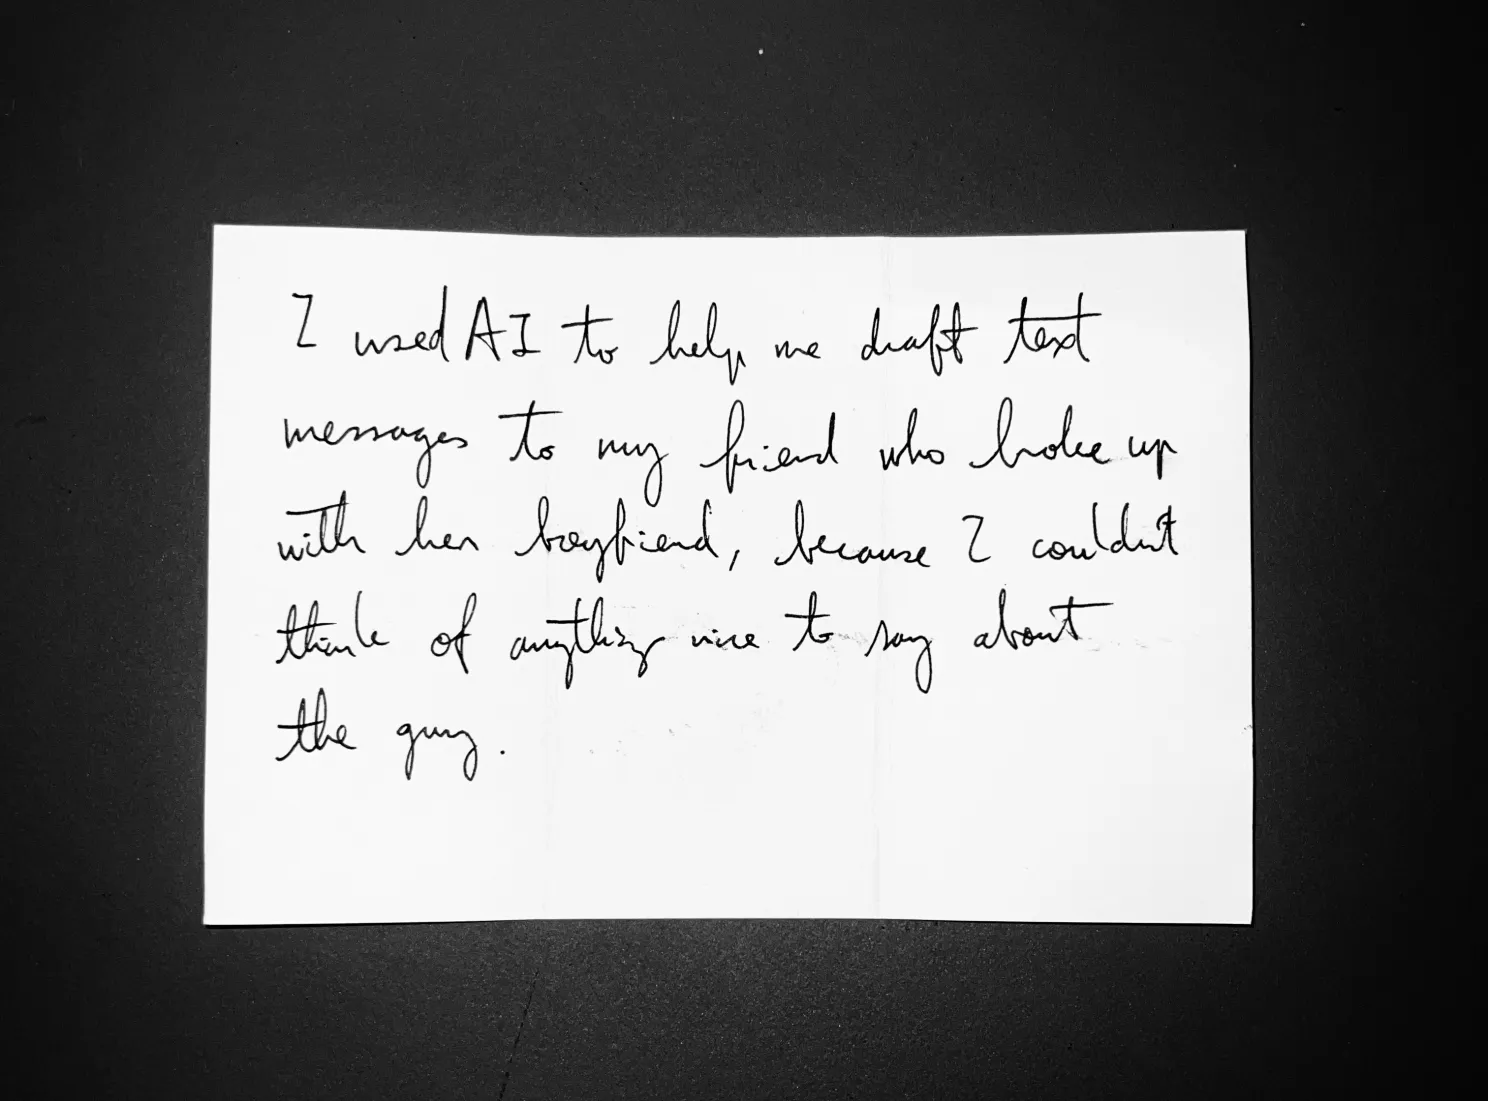 I used AI to help me draft text
messages to my friend who broke up
with her boyfriend, because I couldn't
think of anything nice to say about
the guy.